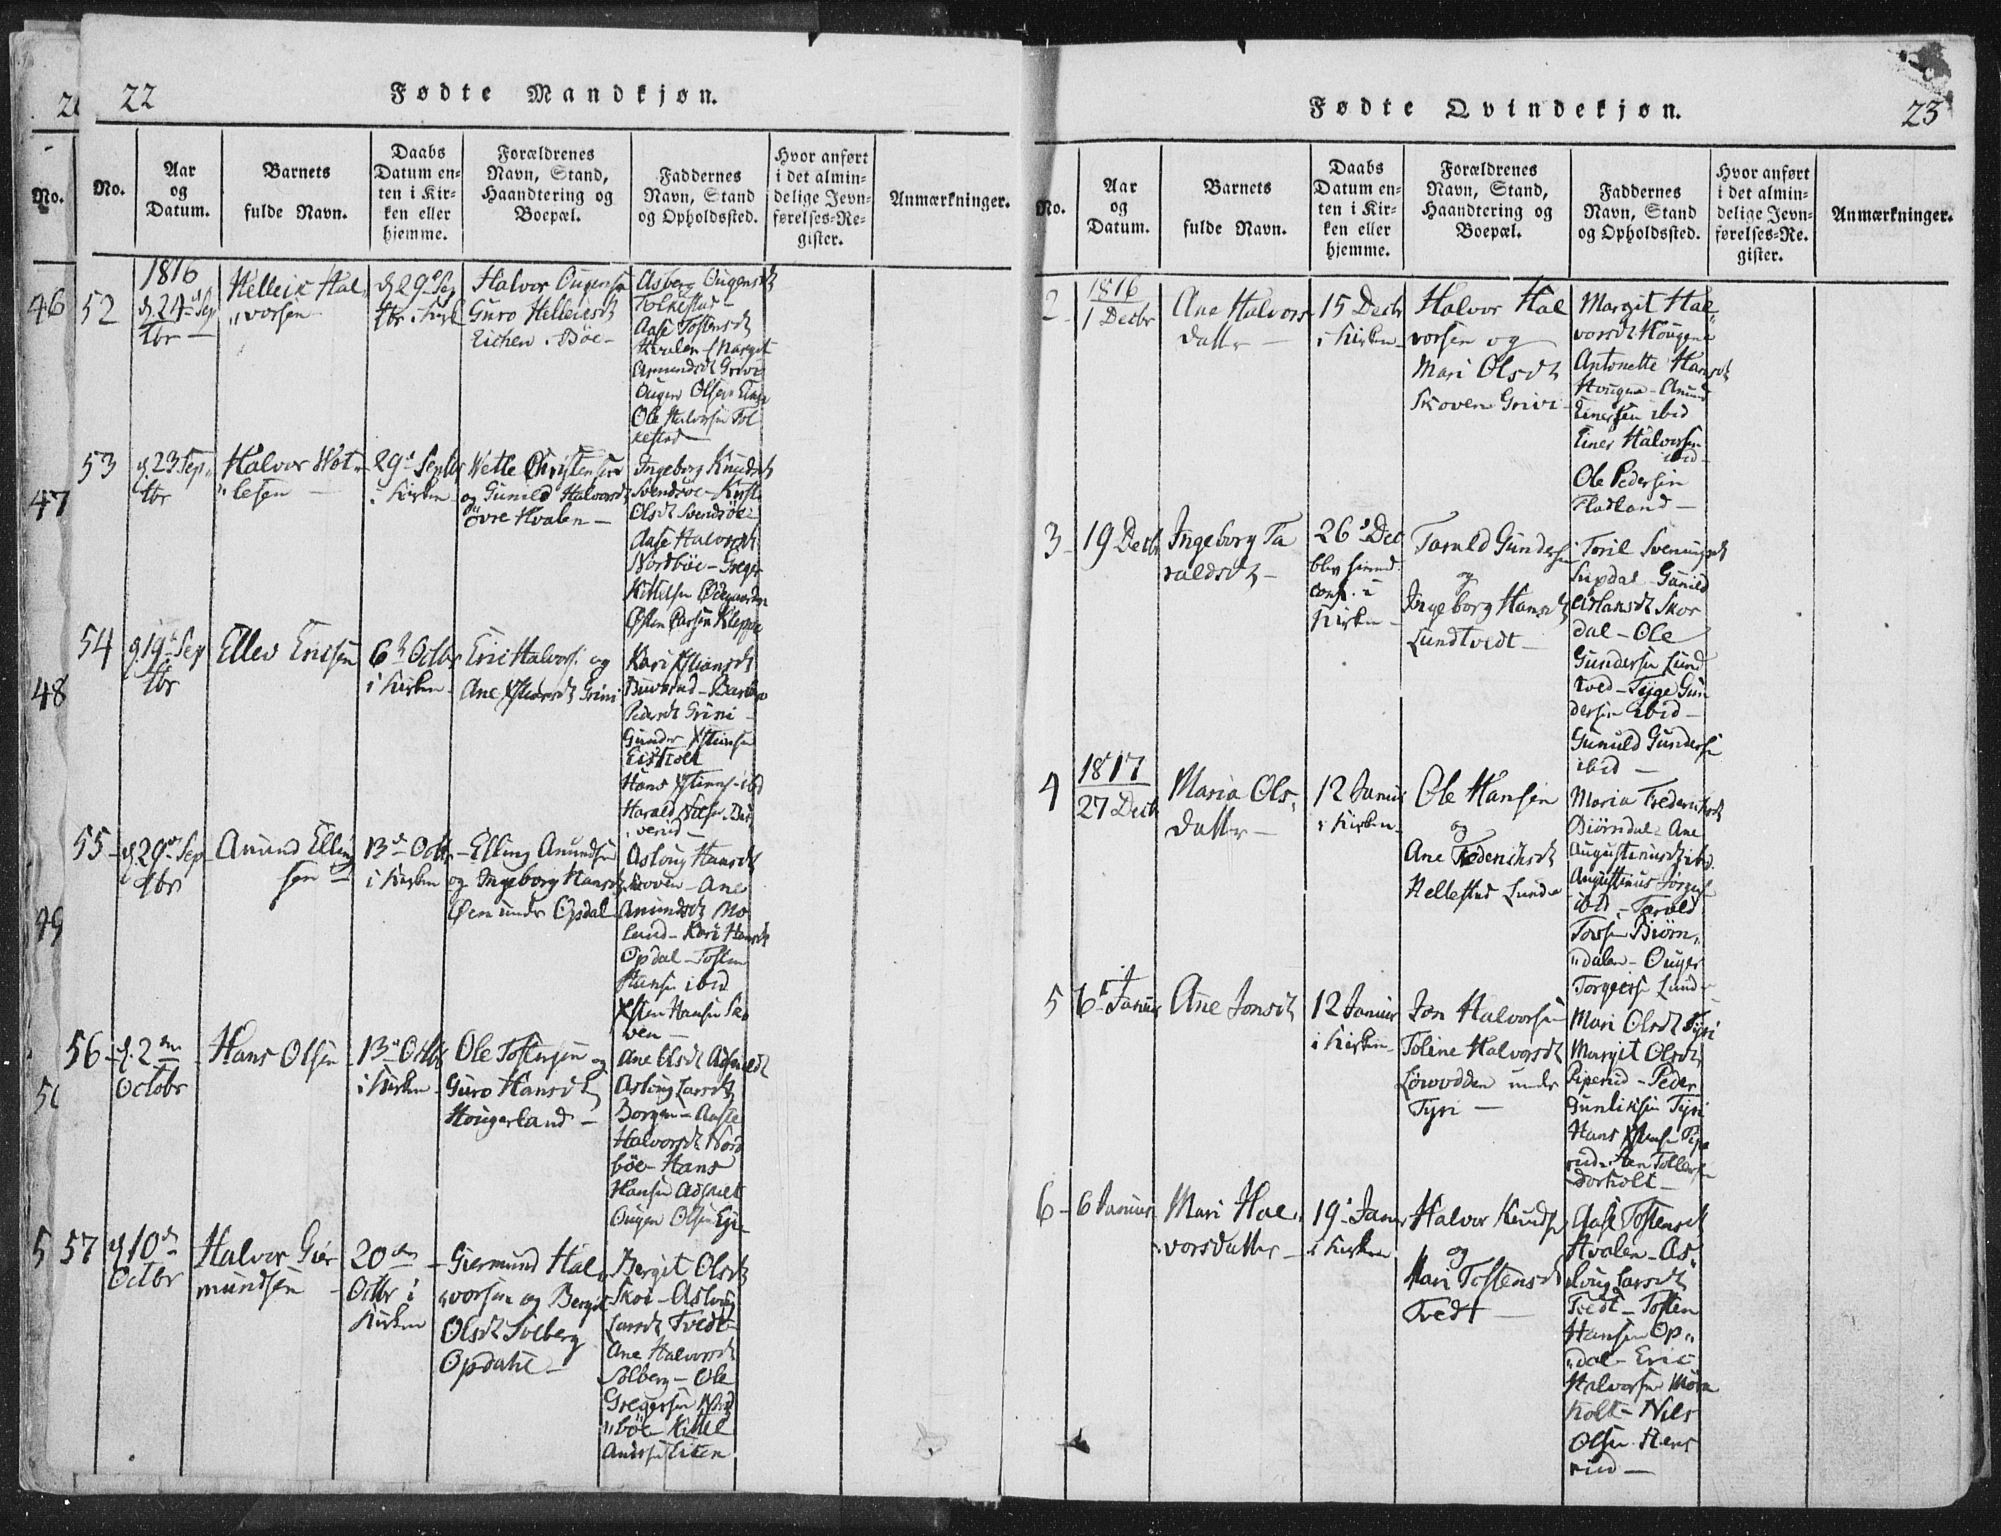 22
Fødte Mandkjøn.
No.
Aar
og
Datum.
Barnets
fulde Navn.
Daabs
Datum en-
ten i Kir-
ken eller
hjemme.
Forældrenes
Navn, Stand,
Haandtering og
Boepæl.
Faddernes
Navn, Stand
og Opholdssted.
Hvor anført
i det almin-
delige Jevn-
førelses-Re-
gister.
Anmærkninger.
No.
46
47
48
49
5
52
1816
d. 24 Sep
tbr
Helleik Hal
vorsen
d 29 Sep
tbr i
Halvor Ougensen
Guro Helleiksdt
Eichen. Bøe
Asberg Ougensdt
Folkestad
Aase Tostensdt
Hvalen - Margit
Amundsdt Grivi
Ougen Olsen
Ole Halvorsen Fol
kestad
53
d. 23 Sep
tbr
Halvor Wet
lesen
29 Septbr
i Kirken
Wetle Christensen
og Gunild Halvorsdt
øvre Hvalen
Ingeborg Knudsdt
Svendsøe - Kirsti
Olsdt Svendsøe
Aase Halvorsdt
Nordbøe - Greger
Kittelsen
Østen Larsen Kleppe
54
d. 19 Sep
tbr
Ellev Ericsen
6 Octbr
i Kirken
Eric Halvors. og
Ane
Kari
Pedersdt Grini
Gunder
Hans ibd
Harald Nilsen
55
d. 29 Sep
tbr
Anund Elling
sen
13 Octb
i Kirken
Elling Anundsen
og Ingeborg Hansdt
Øen under Opdal
Aslaug Hansdt
Skoven - Ane
Anundsdt Mo
land - Kari Hansdt
Opdal - Tosten
Hansen ibid
Hansen Sko
ven
56
d. 2
Octobr
Hans Olsen
13 Octbr
i Kirken
Ole Tostensen og
Guro Hansdt
Hougerland
Ane Olsdt
Aslaug Larsdt
Borgen - Aaste
Halvorsdt Nord
bøe - Hans
Hansen
Ougen Olsen
57
d 10
Octbr
Halvor Gier
mundsen
20
Octbr i
Kirken
Giermund Hal
vorsen og Bergit
Olsdt Solberg
Opdahl
Bergit Olsdt
Skoe - Aslaug
Larsdt Tvedt
Ane Halvorsdt
Solberg - Ole
Gregersen Nord
bøe - Kittel
Eiken
Fødte Qvindekjøn.
23
No.
Aar
og
Datum.
Barnets
fulde Navn.
Daabs
Datum en-
ten i Kir-
ken eller
hjemme.
Forældrenes
Navn, Stand,
Haandtering og
Boepæl.
Faddernes
Navn, Stand
og Opholdssted.
Hvor anført
i det almin-
delige Jevn-
førelses-Re-
gister.
Anmærkninger.
2
1816
1 Decbr
Ane Halvors
datter
15 Decbr
i Kirken
Halvor Hal
vorsen og
Mari Olsdt
Skoven Grivi
Margit Hal
vorsdt Hougene
Antonette Hansdt
Hougne - Anund
Einersen ibid
Einer Halvorsen
ibid
Ole Pedersen
Fladland
3
19 Decbr
Ingeborg Ta
raldsdt
26 Dec
blev hiemd.
conf. i
Kirken
Tarald Gundersen
og
Ingeborg Hansdt
Lundtvedt
Toril Sveningsdt
Gunild
Aslaksdt Skor
dal - Ole
Gundersen Lund
tved - Tyge Gun
dersen ibid
Gunuld Gundersen
ibid
4
1817
27 Decbr
Maria Ols
datter
12 Januar
i Kirken
Ole Hansen
og
Ane Frederiksdt
Hellestad Lunde
Maria Frederiksdt
Biørndal - Ane
Augustinusdt ibd.
Augustinus
ibid - Tarald
Torsen Biørn
dalen - Ouger
Torgersen Lunde
5
6 Januar
Ane Jonsdt
12 Januar
i Kirken
Jon Halvorsen
Toline Halvorsdt
Løwodden under
Tyri
Mari Olsdt Tyri
Margit Olsdt
Piperud - Peder
Gunliksen Tyri
Hans Pipe
rud
6
6 Januar
Mari Hal
vorsdatter
19 Janu
i Kirken
Halvor Knuds
og
Mari Tostensdt
Tvedt
Aase Tostensdt
Hvalen - As
loug Larsdt
Tvedt - Tosten
Hansen Op
dal - Eric
Halvorsen Mørk
holt - Nils
Olsen Hens
rud